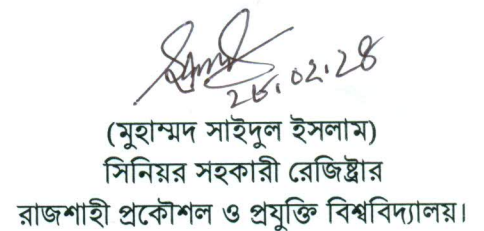 ২৮.০২.২৪
(মুহাম্মদ সাইদুল ইসলাম)
সিনিয়র সহকারী রেজিষ্ট্রার
রাজশাহী প্রকৌশল ও প্রযুক্তি বিশ্ববিদ্যালয়।